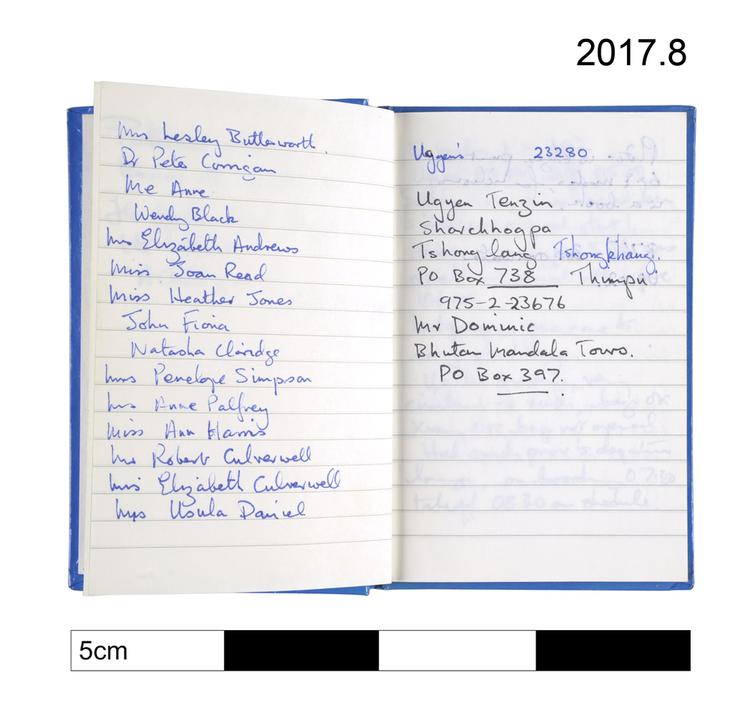 2017.8
Mrs Lesley Butterworth.
Dr Peter Corrigan
Me Anne
Wendy Black
Mrs Elizabeth Andrews
Miss Joan Read
Miss Heather Jones
John Fiona
Natasha Claridge
Mrs Penelope Simpson
Mrs Anne Palfrey
Miss Ann Harris
Mr Robert Culverwell
Mrs Elizabeth Culverwell
Mrs Usula Daniel
Ugyen's 23280.
Ugyen Tenzin
Sharchhogpa
Tshong lang Tshongkhang.
PO Box 738 Thimpu
975-2-23676
Mr Dominic
Bhutan Mandala Tours.
PO Box 397.
5cm